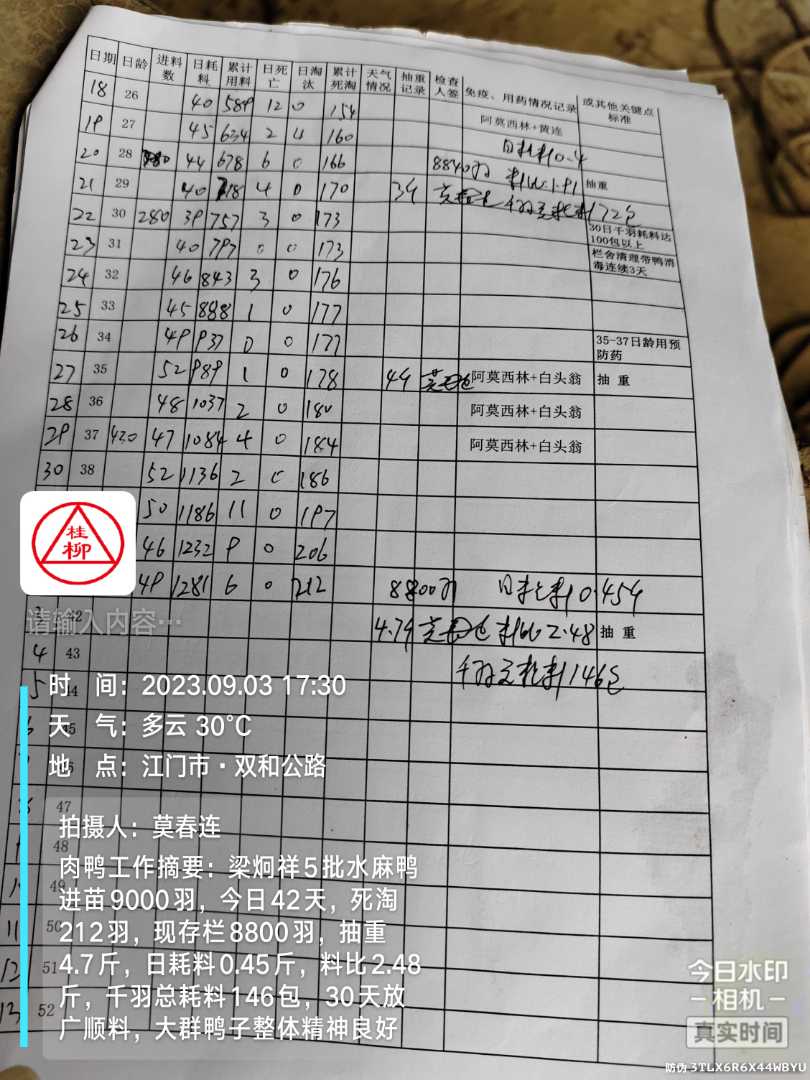 日期 日龄 进料数 日耗料 累计用料 日死亡 日淘汰 累计死淘 天气情况 抽重记录 检查人签 免疫、用药情况记录 或其他关键点标准
18 26 40 589 12 0 154 阿莫西林+黄连
19 27 45 634 2 4 160
20 28 44 678 6 0 166 8840羽
21 29 40 718 4 0 170 抽重
22 30 280 39 757 3 0 173 30日千羽耗料达100包以上
23 31 40 797 0 0 173 栏舍清理带鸭消毒连续3天
24 32 46 843 3 0 176
25 33 45 888 1 0 177
26 34 49 937 0 0 177 35-37日龄用预防药
27 35 52 989 1 0 178 阿莫西林+白头翁 抽 重
28 36 48 1037 2 0 180 阿莫西林+白头翁
29 37 430 47 1084 4 0 184 阿莫西林+白头翁
30 38 52 1136 2 0 186
50 1186 11 0 197
46 1232 9 0 206
49 1281 6 0 212 8800羽 日耗料0.454
4.74 料比2.48 抽 重
4 43
千羽总耗料146包
47
48
49
11 50
12 51
13 52
桂柳
请输入内容…
时 间：2023.09.03 17:30
天 气：多云 30℃
地 点：江门市·双和公路
拍摄人：莫春连
肉鸭工作摘要：梁炯祥5批水麻鸭
进苗9000羽，今日42天，死淘
212羽，现存栏8800羽，抽重
4.7斤，日耗料0.45斤，料比2.48
斤，千羽总耗料146包，30天放
广顺料，大群鸭子整体精神良好
今日水印
相机
真实时间
防伪 3TLX6R6X44WBYU